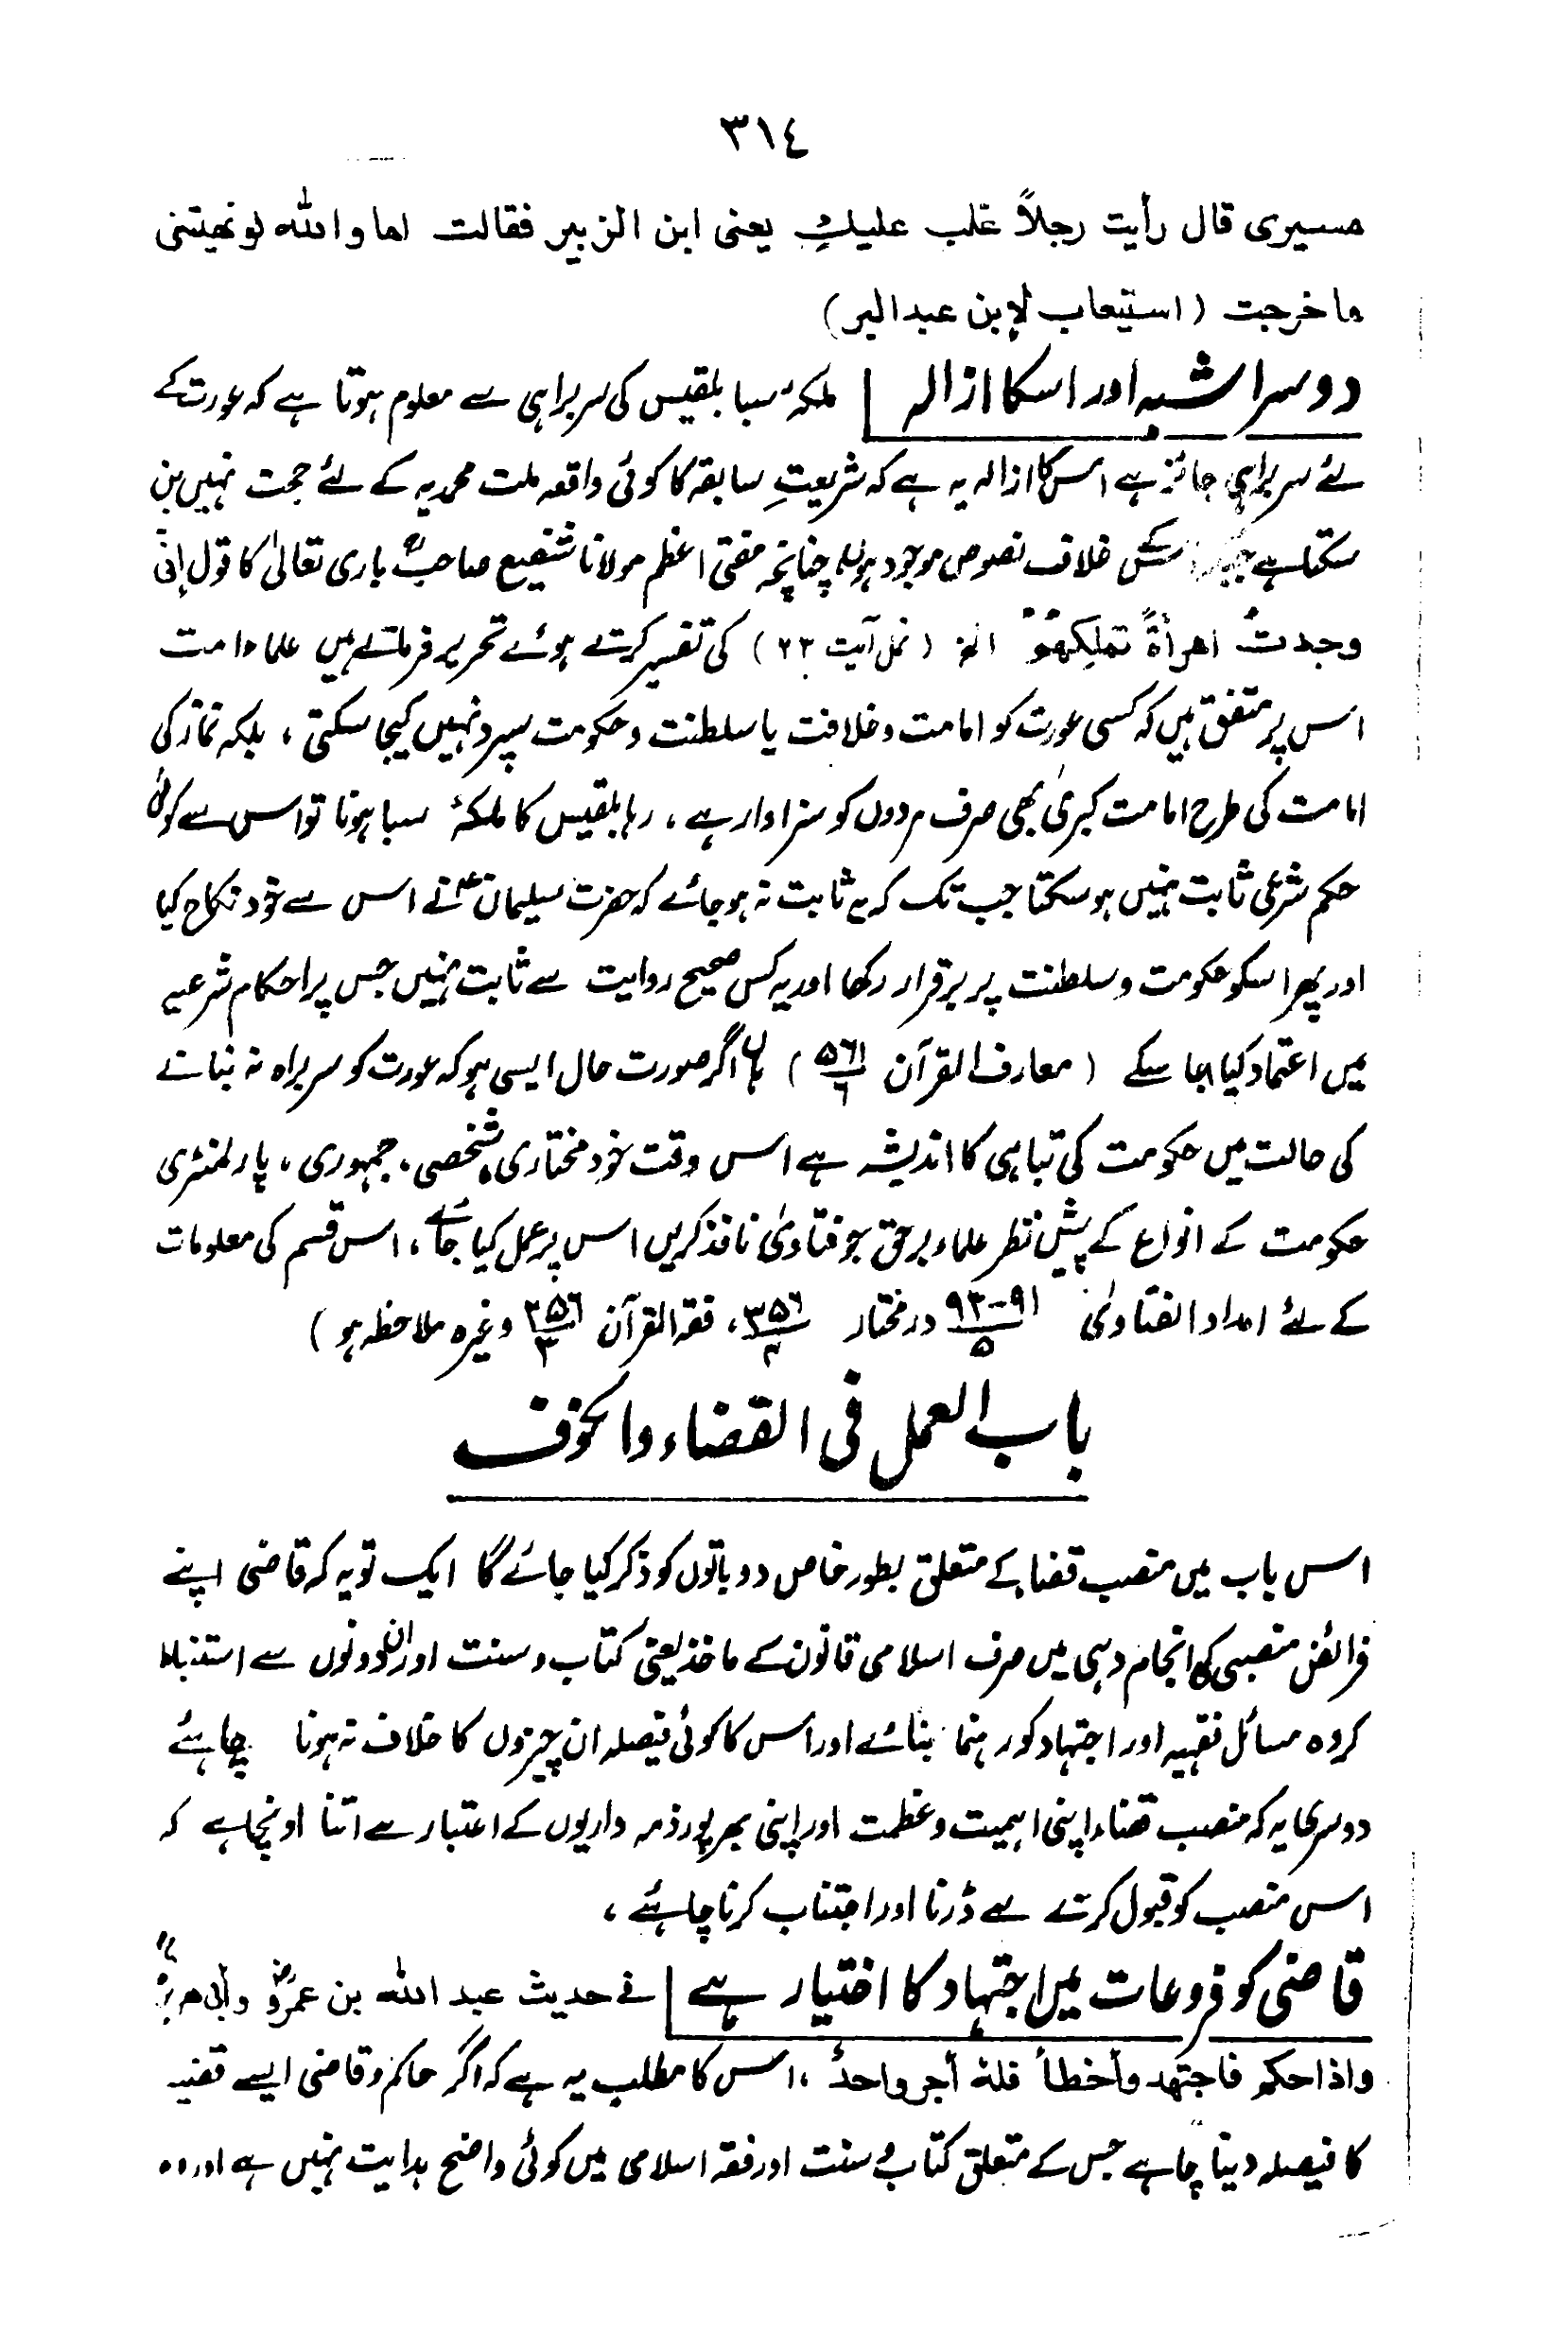 ٣١٤
مسیری قال رأیت رجلاً غلب علیكِ یعنی ابن الزبیر فقالت اما والله لو نھیتنی
ما خرجت (استیعاب لإبن عبد البر)
دوسرا شبہ اور اسکا ازالہ | ملکہٴ سبا بلقیس کی سربراہی سے معلوم ہوتا ہے کہ عورت کے
لئے سربراہی جائز ہے اس کا ازالہ یہ ہے کہ شریعتِ سابقہ کا کوئی واقعہ ملت محمدیہ کے لئے حجت نہیں بن
سکتا ہے جبکہ اسکے خلاف نصوص موجود ہوں، چنانچہ مفتی اعظم مولانا شفیع صاحبؒ باری تعالیٰ کا قول إنّی
وجدتُ امرأةً تملِکھُمْ الخ (نمل آیت ۲۳) کی تفسیر کرتے ہوئے تحریر فرماتے ہیں علماء امت
اس پر متفق ہیں کہ کسی عورت کو امامت و خلافت یا سلطنت و حکومت سپرد نہیں کیجا سکتی ، بلکہ نماز کی
امامت کی طرح امامت کبریٰ بھی صرف مردوں کو سزاوار ہے ، رہا بلقیس کا ملکۂ سبا ہونا تو اس سے کوئی
حکم شرعی ثابت نہیں ہو سکتا جب تک کہ یہ ثابت نہ ہو جائے کہ حضرت سلیمانؑ نے اس سے خود نکاح کیا
اور پھر اسکو حکومت و سلطنت پر برقرار رکھا اور یہ کس صحیح روایت سے ثابت نہیں جس پر احکام شرعیہ
میں اعتماد کیا جا سکے (معارف القرآن ۵۶۱/۶) ہاں اگر صورت حال ایسی ہو کہ عورت کو سربراہ نہ بنانے
کی حالت میں حکومت کی تباہی کا اندیشہ ہے اس وقت خود مختاری، شخصی، جمہوری، پارلمنٹری
حکومت کے انواع کے پیش نظر علماء برحق جو فتاویٰ نافذ کریں اس پر عمل کیا جائے، اس قسم کی معلومات
کے لئے امداد الفتاویٰ ۹۱-۹۳/۵ درمختار ۳۵۶/۴، فقہ القرآن ۳۵۶/۳ وغیرہ ملاحظہ ہو)
باب العمل فی القضاء والخوف
اس باب میں منصب قضا کے متعلق بطور خاص دو باتوں کو ذکر کیا جائے گا ایک تو یہ کہ قاضی اپنے
فرائض منصبی کی انجام دہی میں صرف اسلامی قانون کے ماخذ یعنی کتاب و سنت اور ان دونوں سے استنباط
کردہ مسائل فقہیہ اور اجتہاد کو رہنما بنائے اور اس کا کوئی فیصلہ ان چیزوں کا خلاف نہ ہونا چاہئے
دوسری یہ کہ منصب قضاء اپنی اہمیت و عظمت اور اپنی بھر پور ذمہ داریوں کے اعتبار سے اتنا اونچا ہے کہ
اس منصب کو قبول کرتے سے ڈرنا اور اجتناب کرنا چاہئے ،
قاضی کو فروعات میں اجتہاد کا اختیار ہے | فے حدیث عبد الله بن عمروؓ وأبی ھریرةؓ
واذا حکم فاجتھد وأخطأ فلهٗ أجر واحدٌ ، اس کا مطلب یہ ہے کہ اگر حاکم و قاضی ایسے قضیہ
کا فیصلہ دینا چاہے جس کے متعلق کتاب و سنت اور فقہ اسلامی میں کوئی واضح ہدایت نہیں ہے اور وہ